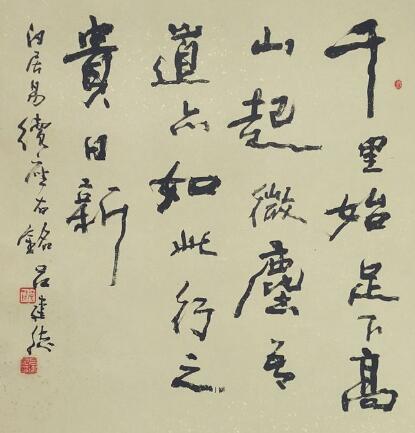 千里始足下高
山起微塵吾
道亦如此行之
貴日新
白居易續座右銘 吕建德